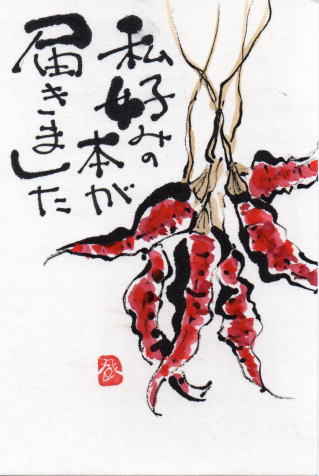 私好みの
本が
届きました